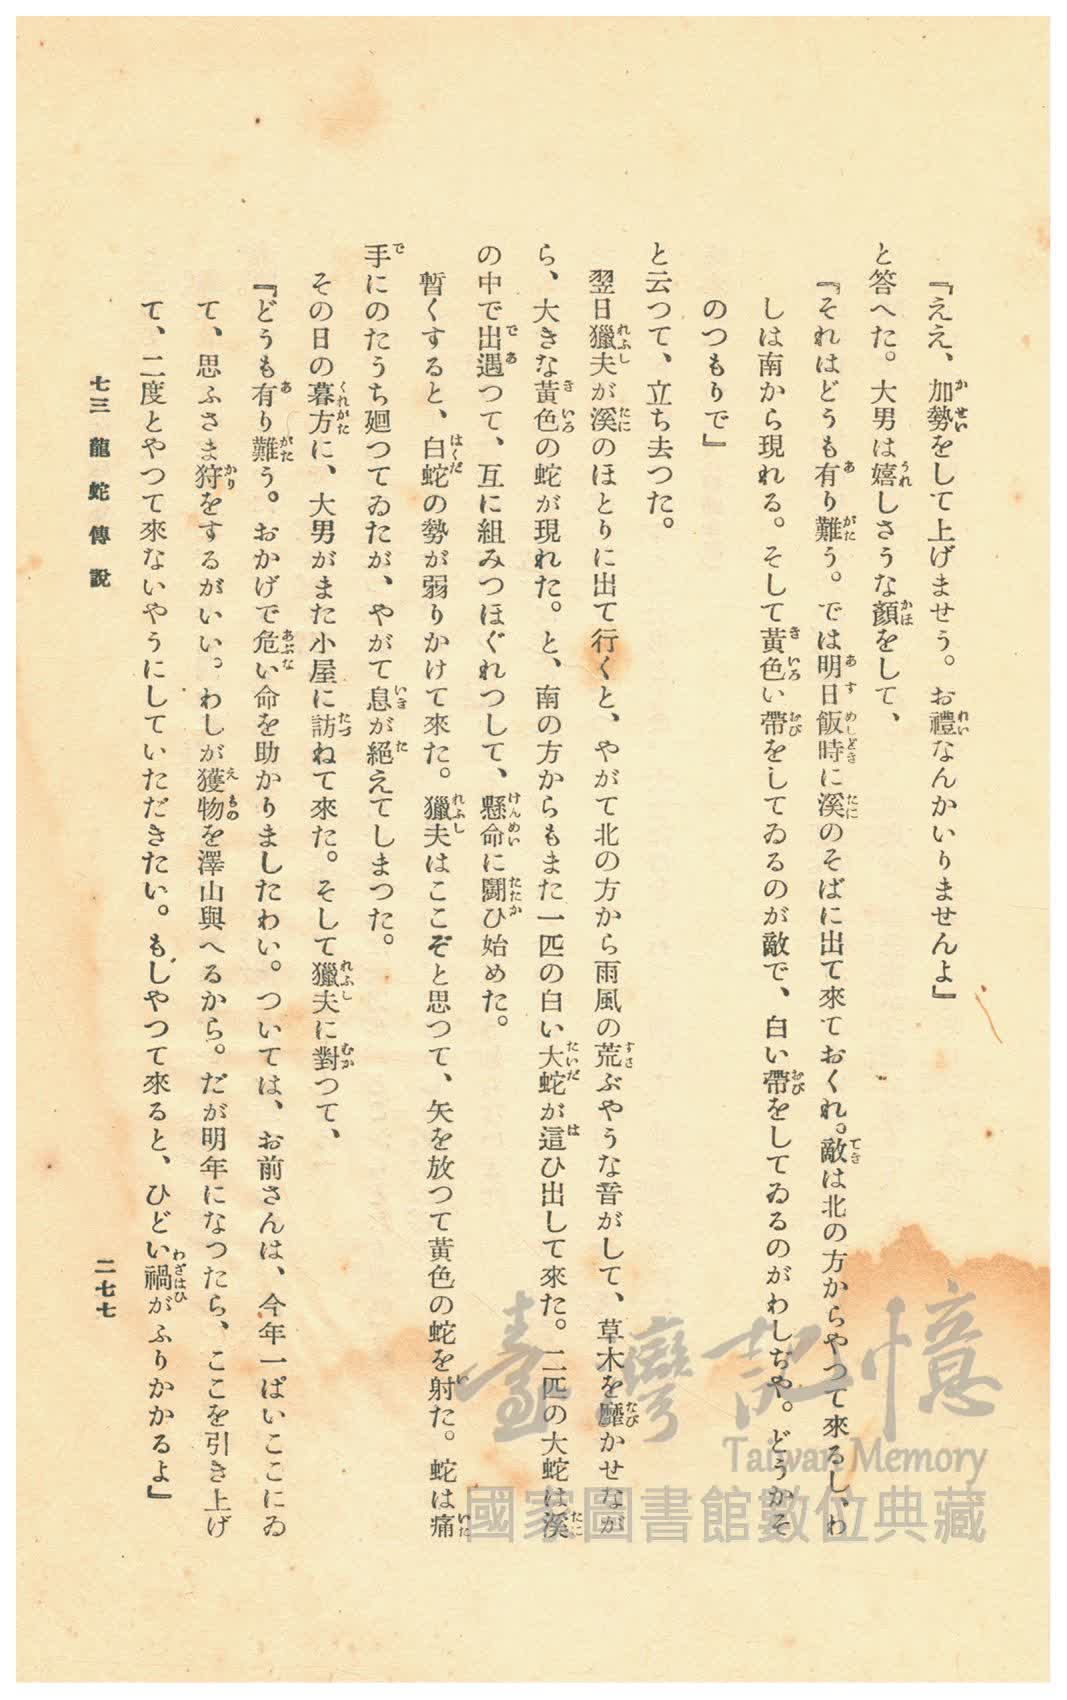 『ええ、加勢をして上げませう。お禮なんかいりませんよ』
と答へた。大男は嬉しさうな顏をして、
『それはどうも有り難う。では明日飯時に溪のそばに出て來ておくれ。敵は北の方からやつて來るし、わ
しは南から現れる。そして黃色い帶をしてゐるのが敵で、白い帶をしてゐるのがわしぢや。どうかそ
のつもりで』
と云つて、立ち去つた。
翌日獵夫が溪のほとりに出て行くと、やがて北の方から雨風の荒ぶやうな音がして、草木を靡かせなが
ら、大きな黃色の蛇が現れた。と、南の方からもまた一匹の白い大蛇が這ひ出して來た。二匹の大蛇は溪
の中で出遇つて、互に組みつほぐれつして、懸命に鬪ひ始めた。
暫くすると、白蛇の勢が弱りかけて來た。獵夫はここぞと思つて、矢を放つて黃色の蛇を射た。蛇は痛
手にのたうち廻つてゐたが、やがて息が絕えてしまつた。
その日の暮方に、大男がまた小屋に訪ねて來た。そして獵夫に對つて、
『どうも有り難う。おかげで危い命を助かりましたわい。ついては、お前さんは、今年一ぱいここにゐ
て、思ふさま狩をするがいい。わしが獲物を澤山與へるから。だが明年になつたら、ここを引き上げ
て、二度とやつて來ないやうにしていただきたい。もしやつて來ると、ひどい禍がふりかかるよ』
七三 龍蛇傳說
二七七
臺灣記憶
Taiwan Memory
國家圖書館數位典藏